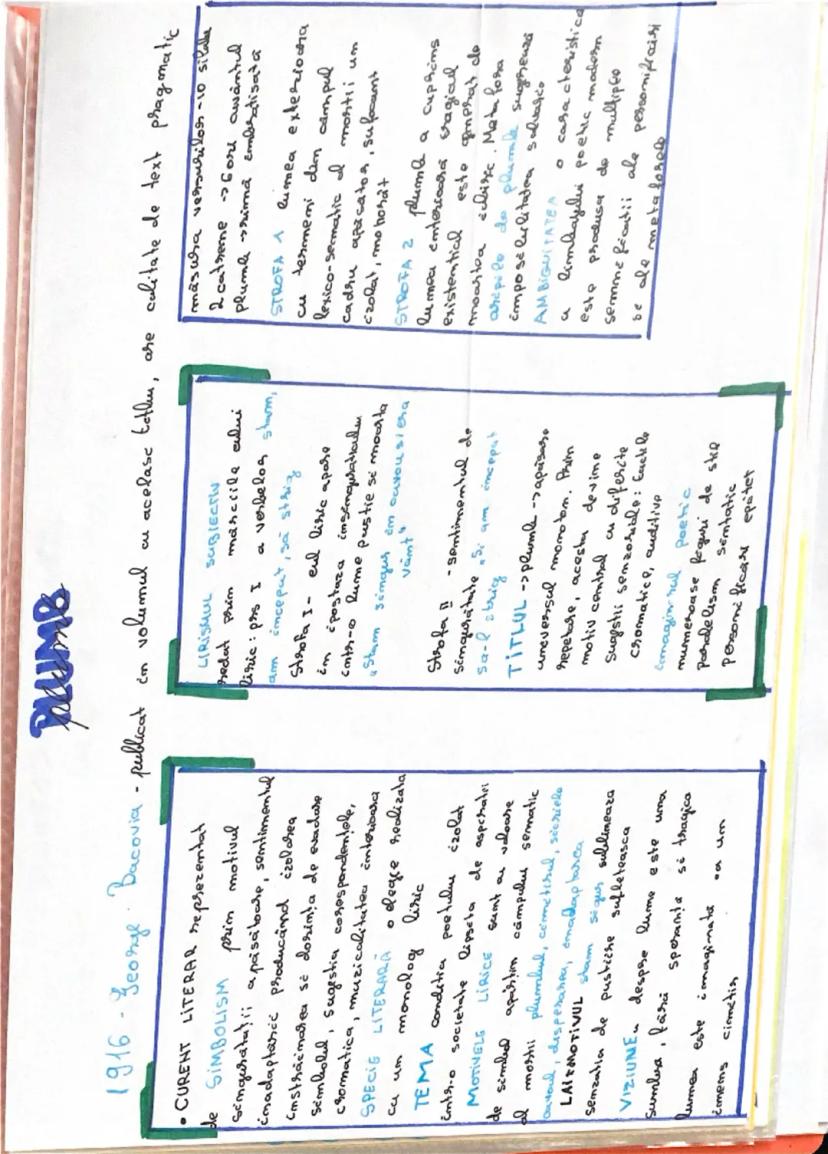 PLUMB
1916 - George Bacovia - publicat în volumul cu același titlu, are calitate de text pragmatic
• CURENT LITERAR reprezentat
de SIMBOLISM prin motivul
singurătății apăsătoare, sentimentul
inadaptării producând izolarea
înstrăinarea și dorința de evadare
simbolul, sugestia corespondențele,
cromatica, muzicalitatea interioară
SPECIE LITERARĂ o elegie realizată
ca un monolog liric
TEMA condiția poetului izolat
într-o societate lipsită de aspirații
MOTIVELE LIRICE sunt cu valoare
de simbol aparțin câmpului semantic
al morții plumbul, cimitirul, sicriele
cavoul, disperarea, inadaptarea
LAITMOTIVUL stam sigur subliniaza
senzatia de pustiire sufleteasca
VIZIUNEA despre lume este una
sumbra, fără speranțe si tragica
lumea este imaginată ca un
imens cimitir
LIRISMUL SUBIECTIV
redat prin mărciile eului
liric: prs I a verbelor stam,
am inceput, să strig
Strofa I - eul liric apare
în ipostaza insinguratului
intr-o lume pustie si moarta
"Stam singur în cavou si era
vânt"
Strofa II - sentimentul de
singuratate "Si am inceput
sa-l strig
TITLUL -> plumb -> apăsare
universul monoton. Prin
repetare, acesta devine
motiv central cu diferite
sugestii senzoriale: tactile
cromatice, auditive
imaginarul poetic
numeroase figuri de stil
paralelism sintatic
personificare epitet
măsura versurilor - 10 silabe
2 catrene -> 6 ori cuvântul
plumb -> rimă îmbrațisată
STROFA 1 lumea exterioara
cu termeni din câmpul
lexico-semantic al mortii un
cadru apăsător, sufocant
izolat, mohorât
STROFA 2 plumb a cuprins
lumea interioară tragicul
existential este amprat de
moartea iubirii. Metafora
aripile de plumb sugerează
imposibilitatea salvării
AMBIGUITATEA o caracteristica
a limbajului poetic modern
este produsa de multiple
semnificatii ale personificarii
si ale metaforelor